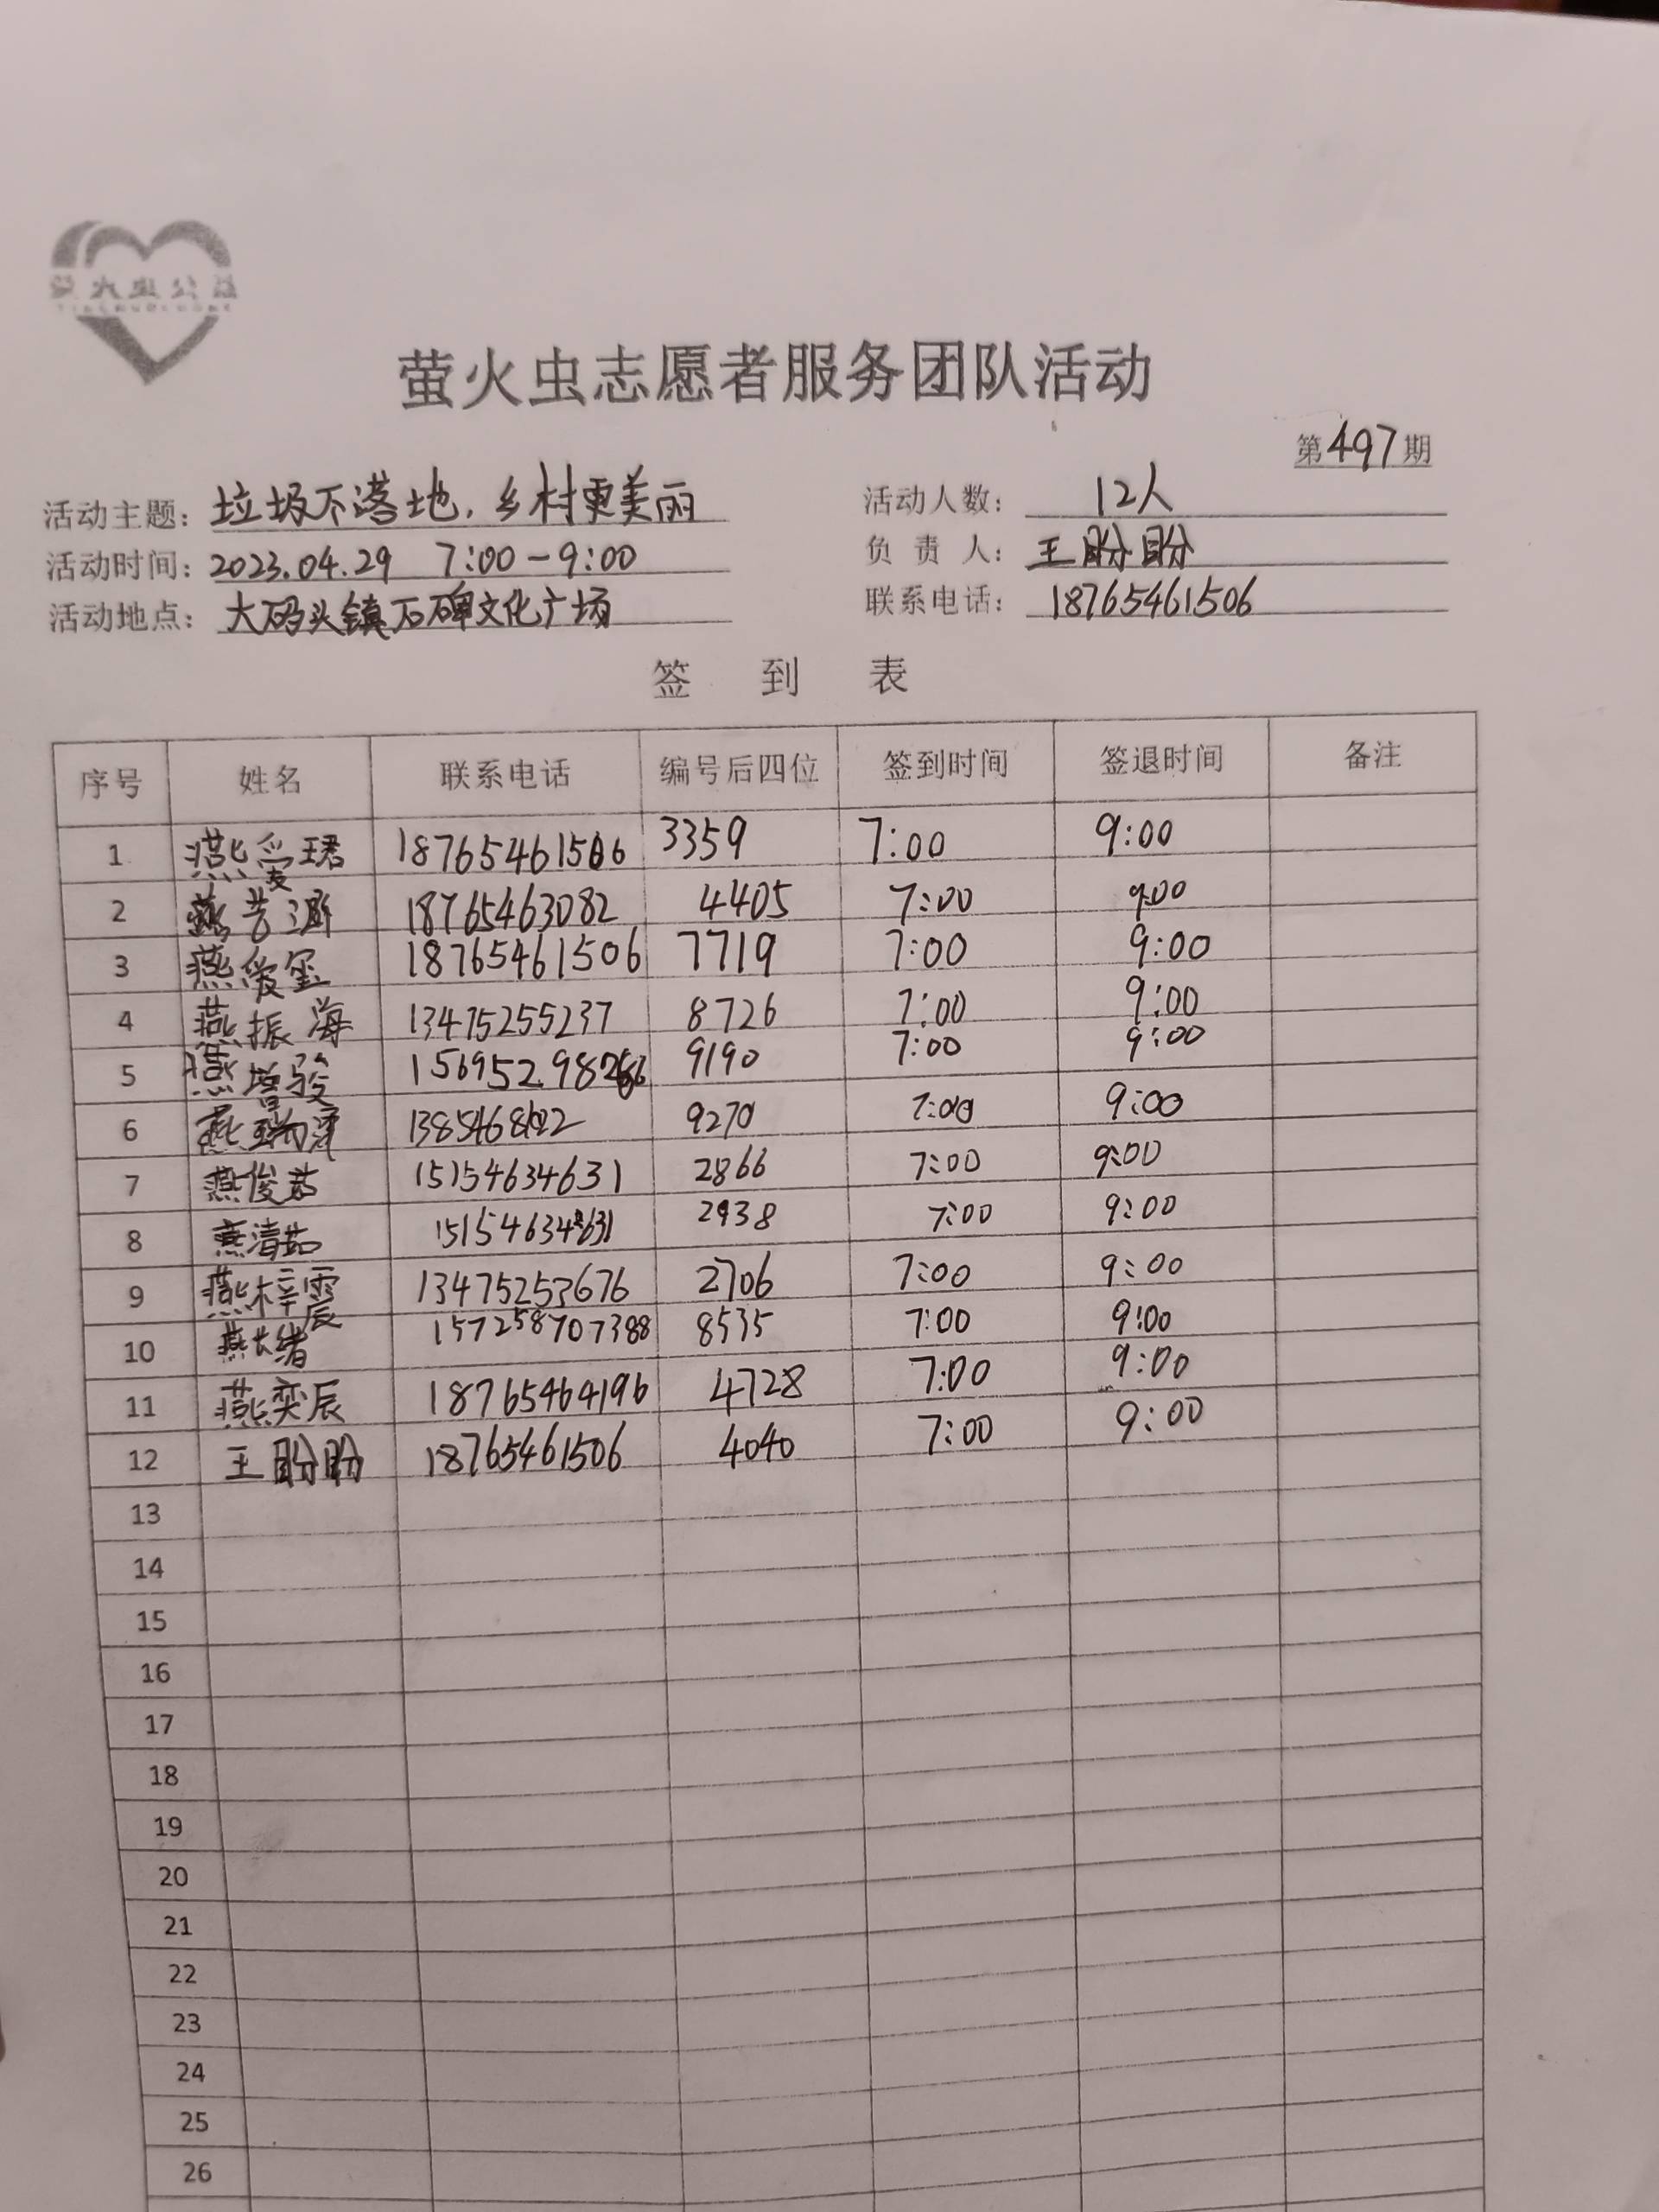 萤火虫公益
萤火虫志愿者服务团队活动
第497期
活动主题：垃圾不落地，乡村更美丽 活动人数：12人
活动时间：2023.04.29 7:00-9:00 负责人：王盼盼
活动地点：大码头镇石碑文化广场 联系电话：18765461506
签到表
序号 姓名 联系电话 编号后四位 签到时间 签退时间 备注
1 燕爱珺 18765461506 3359 7:00 9:00
2 燕 18765463082 4405 7:00 9:00
3 燕爱玺 18765461506 7719 7:00 9:00
4 燕振海 13475255237 8726 7:00 9:00
5 燕增骏 9190 7:00 9:00
6 燕瑞泽 9270 7:00 9:00
7 燕俊茹 15154634631 2866 7:00 9:00
8 燕清茹 15154634631 2938 7:00 9:00
9 燕梓霖 13475253676 2706 7:00 9:00
10 燕长绪 157258707388 8535 7:00 9:00
11 燕奕辰 18765464196 4728 7:00 9:00
12 王盼盼 18765461506 4040 7:00 9:00
13
14
15
16
17
18
19
20
21
22
23
24
25
26